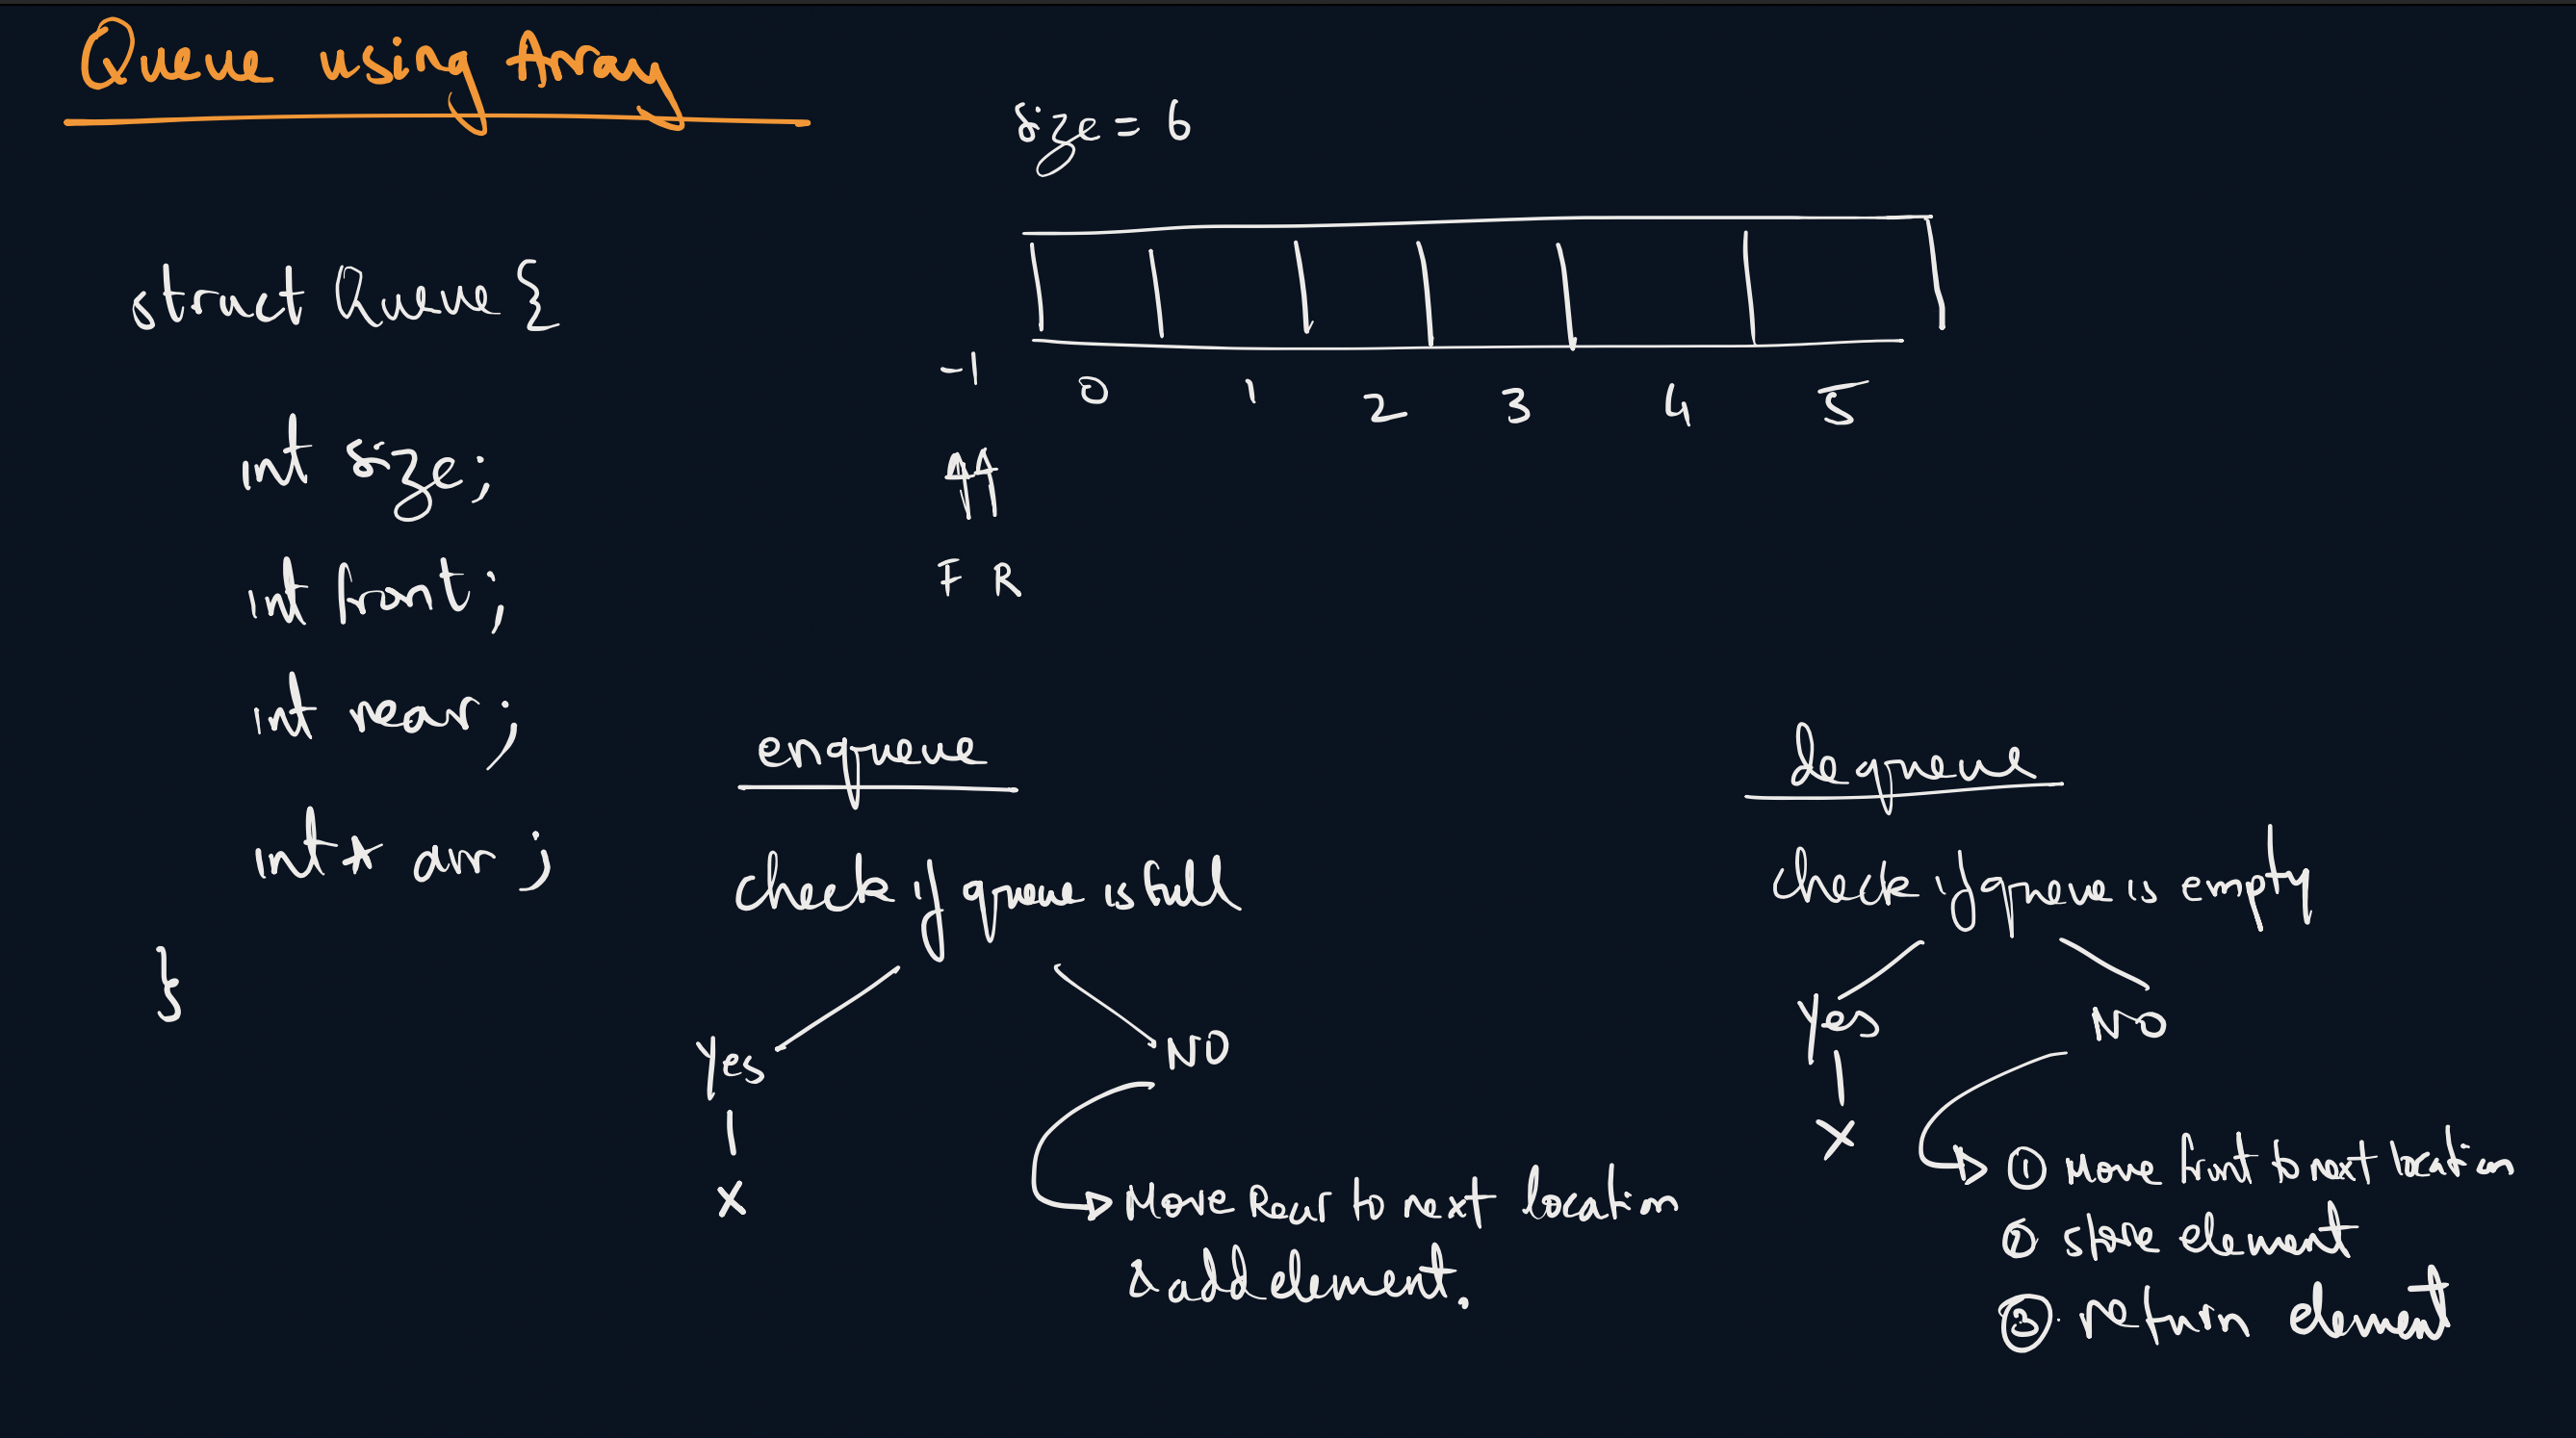 Queue using Array
size = 6
struct Queue {
int size;
int front;
int rear;
int* arr;
}
-1 0 1 2 3 4 5
F R
enqueue
check if queue is full
Yes NO
X
Move Rear to next location
& add element.
dequeue
check if queue is empty
Yes NO
X
① Move front to next location
② store element
③. return element